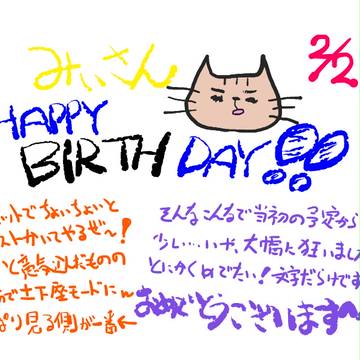 みぃさん
2/2
HAPPY
BIRTH DAY!!
ットでちょいちょいと
ストかいてやるぜ〜!
いと意気込だものの
で土下座モードにw
ぱり見る側が一番←
そんなこんなで当初の予定から
少し…いや、大幅に狂いまし
とにかくめでたい!文字だらけです
おめでとうございます〜